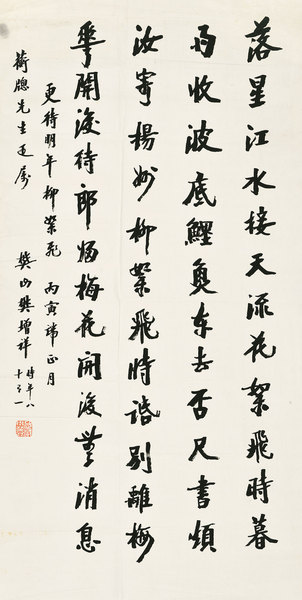 落星江水接天流花絮飛時暮
雨收波底鯉魚东去否尺書煩
汝寄楊妙柳絮飛時話別離梅
華開後待郎歸梅花開後無消息
更待明年柳絮飛 丙寅端正月
蘅牕先生正屬 樊山樊增祥 時年八
十有一